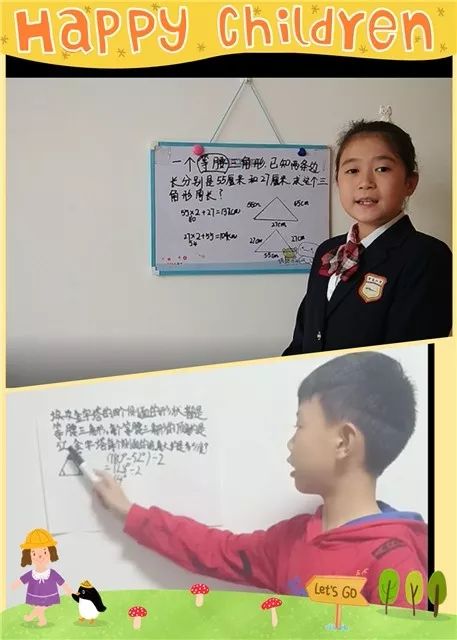 Happy Children
一个等腰三角形,已知两条边
长分别是55厘米和27厘米,求这个三
角形周长?
55×2+27=137cm
55cm 55cm
27cm
27×2+55=109cm
54
27cm 27cm
55cm
埃及金字塔的四个侧面的形状都是
等腰三角形,每个等腰三角形的顶角是
金字塔每个侧面的底角大约是多少度?
(180°-52°)÷2
=128°÷2
Let's GO